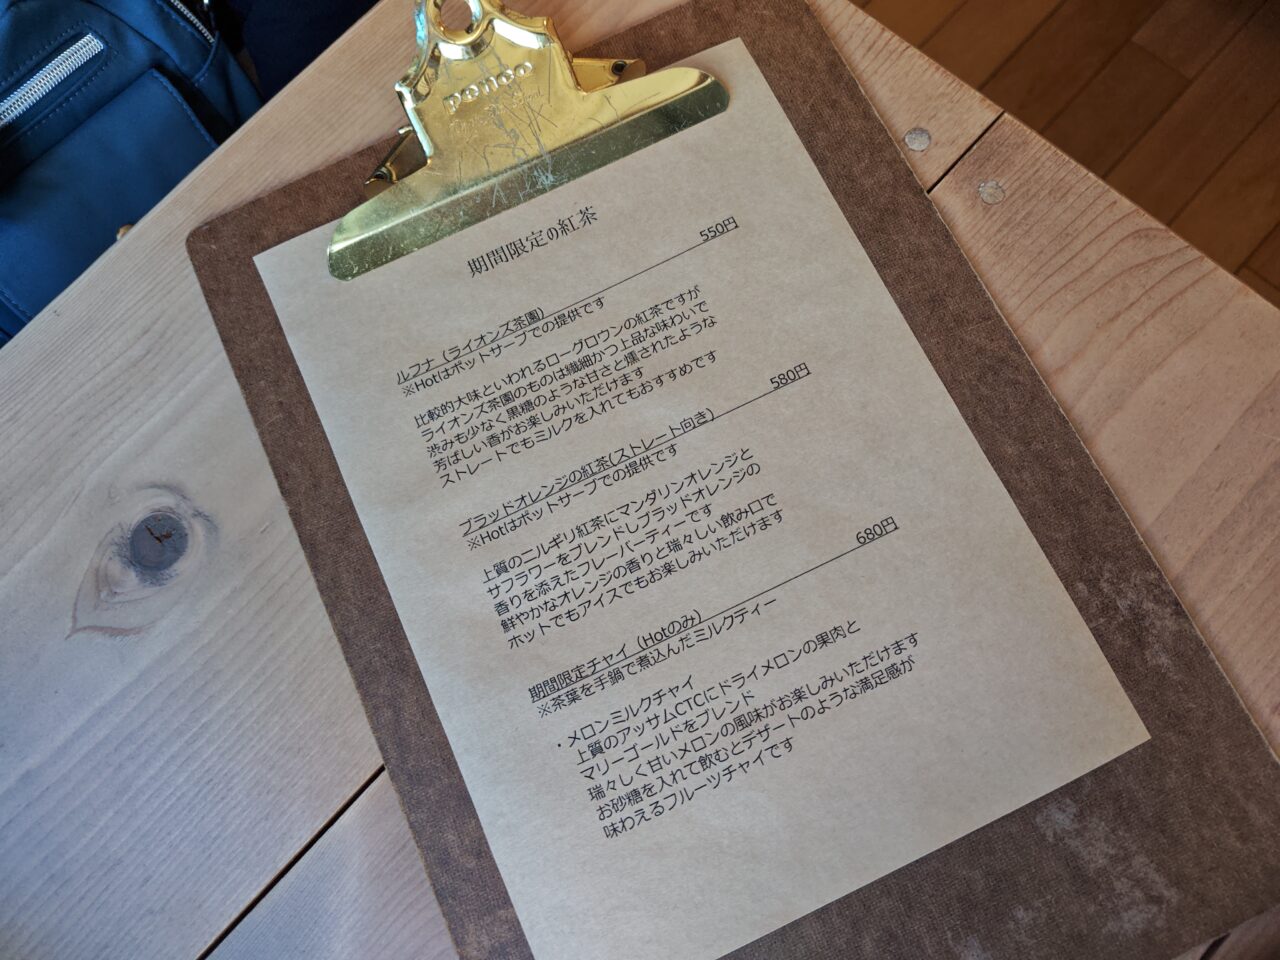 penco
期間限定の紅茶
ルフナ（ライオンズ茶園） 550円
※Hotはポットサーブでの提供です
比較的大味といわれるローグロウンの紅茶ですが
ライオンズ茶園のものは繊細かつ上品な味わいで
渋みも少なく黒糖のような甘さと燻されたような
芳ばしい香がお楽しみいただけます
ストレートでもミルクを入れてもおすすめです
ブラッドオレンジの紅茶(ストレート向き) 580円
※Hotはポットサーブでの提供です
上質のニルギリ紅茶にマンダリンオレンジと
サフラワーをブレンドしブラッドオレンジの
香りを添えたフレーバーティーです
鮮やかなオレンジの香りと瑞々しい飲み口で
ホットでもアイスでもお楽しみいただけます
期間限定チャイ（Hotのみ） 680円
※茶葉を手鍋で煮込んだミルクティー
・メロンミルクチャイ
上質のアッサムCTCにドライメロンの果肉と
マリーゴールドをブレンド
瑞々しく甘いメロンの風味がお楽しみいただけます
お砂糖を入れて飲むとデザートのような満足感が
味わえるフルーツチャイです